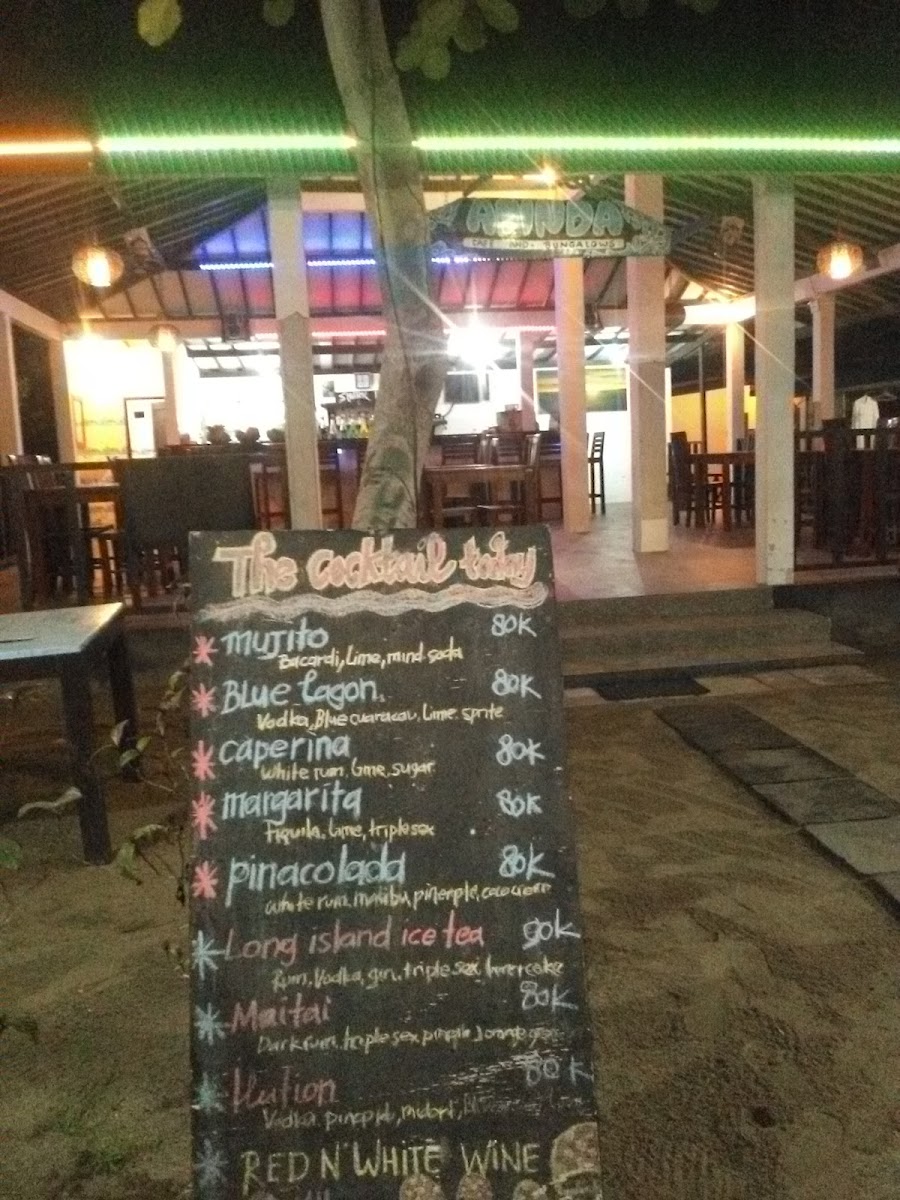 CAFE AND BUNGALOWS
The cocktail today
mujito 80K
Bacardi, Lime, mind soda
Blue lagon 80K
Vodka, Blue cuaracau, Lime. sprite
caperina 80K
white rum, lime, sugar
margarita 80K
Tiquila, lime, triple sex
pinacolada 80K
white rum, malibu, pinenple,
Long island ice tea 90K
Rum, Vodka, gin, triple sex,
Maitai 80K
Dark rum, triple sex,
80K
Vodka
RED N' WHITE WINE